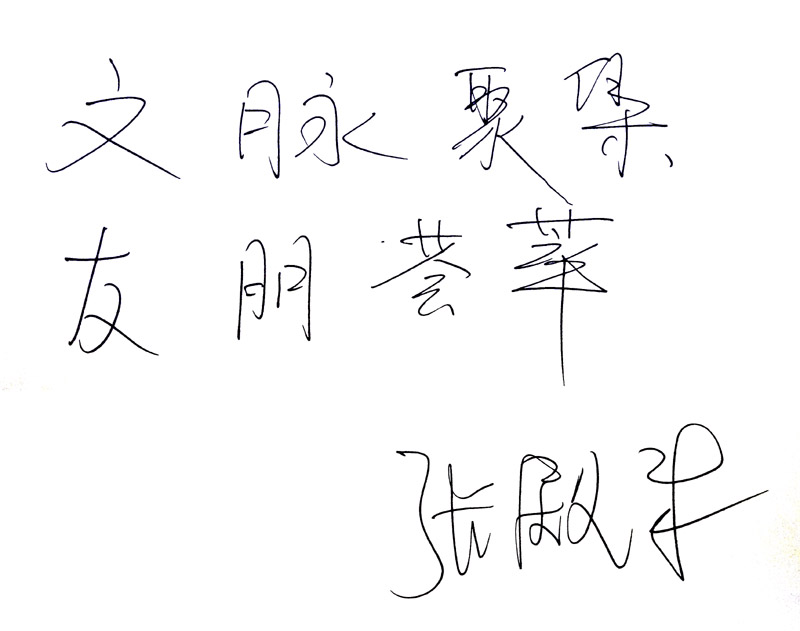 文脉聚集
友朋荟萃
张殿